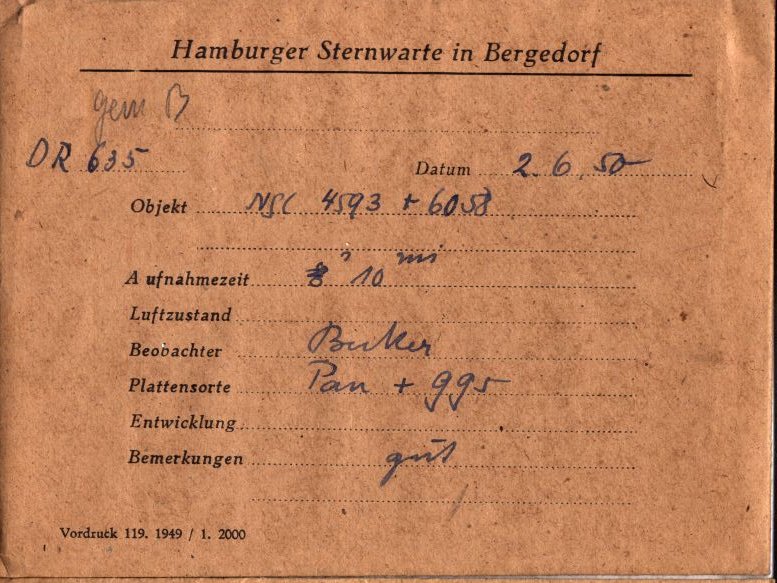 Hamburger Sternwarte in Bergedorf
gem B
DR 635 Datum 2. 6. 50
Objekt NGC 4593 + 6058
Aufnahmezeit 10
Luftzustand
Beobachter
Plattensorte Pan + 995
Entwicklung
Bemerkungen gut
Vordruck 119. 1949 / 1. 2000